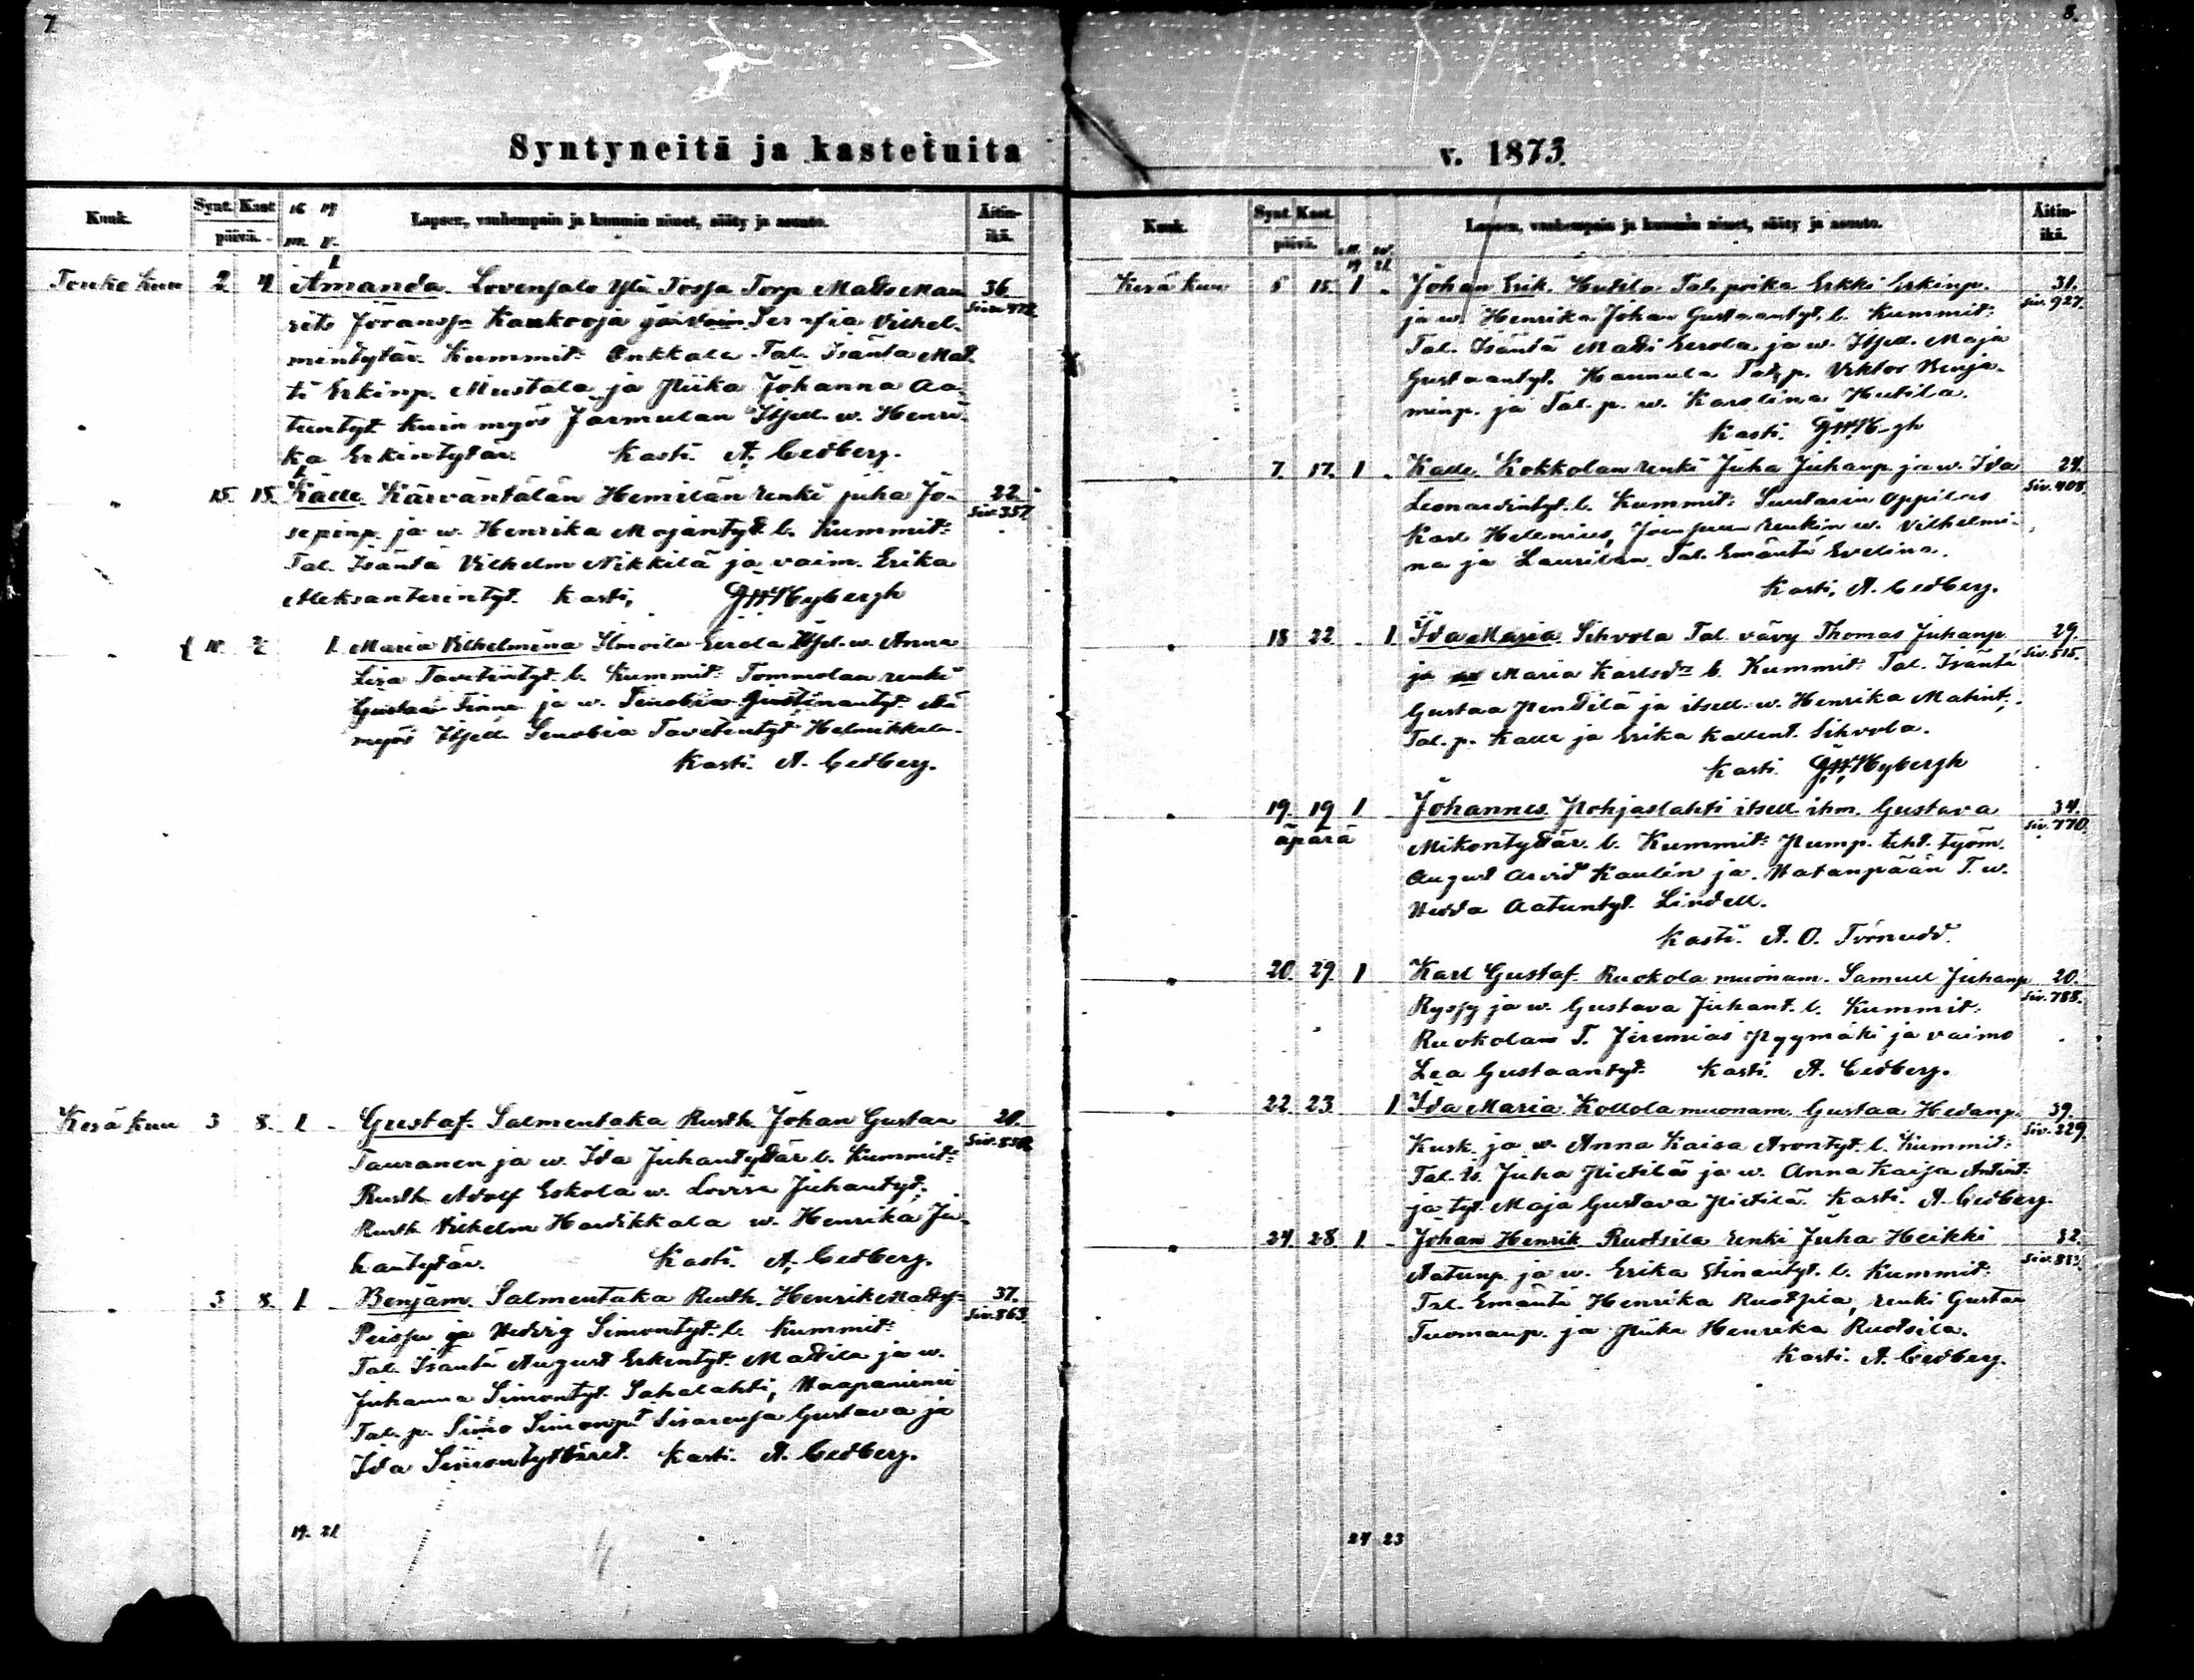 7.
Syntyneitä ja kastetuita
Kuuk. Synt. Kast. päivä. 16 19 m. v. Lapsen, vanhempain ja kummin nimet, sääty ja asunto. Äitin-ikä.
Touko kuu 2 4 1 Amanda. Lovensalo Yli Jossa Torp Matts Mau 36.
rits Göranss. Kaukooja ja Vaim Serafia Vilhel-
mintytär. Kummit: Onkkala Tal. Isäntä Mat
ti Erkinp. Mustala ja Piika Johanna Aa-
tuntyt kuin myös Jarmulan Itsell. w. Henri-
ka Erkintytär. Kasti. A. Cedberg.
" 15. 18. 1 Kalle. Kärväntälän Hemilän renki Juha Jo- 22.
sepinp. ja w. Henrika Majantytt b. Kummit: Siv. 357
Tal. Isäntä Vilhelm Nikkilä ja vaim. Erika
Aleksanterintyt. Kasti,
" 1 Maria Vilhelmina Ilmoila Eerola Itsel. w. Anna
Lisa Tavetintyt b. Kummit: Tommolan renki
Gustaa ja w.
myös Itsell. Senobia Tavetintyt
Kasti. A. Cedberg.
Kesä kuu 3 8. 1 - Gustaf. Salmentaka Rusth. Johan Gustaa
Tauranen ja w. Ida Juhantytär b. Kummit:
Rusth. Adolf Eskola w. Lovisa Juhantyt.
Rusth. Vilhelm Hardikkala w. Henrika Ju-
hantytär. Kasti. A. Cedberg.
" 3 8. 1 - Benjam. Salmentaka Rusth. Henrik Matss: 37.
ja Hedvig Simontyt. b. Kummit: Siv. 863
Tal. Isäntä August Erkintyt. Mattila ja w.
Juhanna Simontyt. Sahalahti, Haapaniemi
Tal. p. Simo Simonp. Sisarensa Gustava ja
Ida Simontyttäret. Kasti. A. Cedberg.
19. 21
8.
v. 1873.
Kuuk. Synt. Kast. päivä. m. v. 19 21 Lapsen, vanhempain ja kummin nimet, sääty ja asunto. Äitin-ikä.
Kesä kuu 5 15. 1 - Johan Erik. Hutila Tal. poika Erkki Erkinp. 31.
ja w. Henrika Johan Gustaantyt. b. Kummit: Siv. 927.
Tal. Isäntä Matti Eerola ja w. Itsell. Maja
Gustaantyt. Hannula Tal. p. Viktor Benja-
minp. ja Tal. p. w. Karolina Hutila.
Kasti.
" 7. 17. 1 - Kalle. Kokkolan renki Juha Juhanp. ja w. Ida 24.
Leonardintyt. b. Kummit: Suutarin Oppilas Siv. 408
Karl Helenius, renkin w. Vilhelmi-
na ja Laurilan Tal. Emäntä Evelina.
Kasti, A. Cedberg.
" 18 22 - 1 Ida Maria. Sihvola Tal. vävy Thomas Juhanp 29.
ja w Maria Karlsdr b. Kummit: Tal. Isäntä Siv. 515.
Gustaa Penttilä ja itsell. w. Henrika Matint.
Tal. p. Kalle ja Erika Kallent. Sihvola.
Kasti.
" 19. 19 1 Johannes. Pohjaslahti itsell. ihm. Gustava 34.
äpärä Mikontyttär b. Kummit: Pump. teht. työm. Siv. 770.
August Arvid Kaulin ja Hatanpään T. w.
Hedda Aatuntyt. Lindell.
Kasti. A. O. Törnudd.
" 20. 29. 1 Karl Gustaf. Ruokola muonam. Samuel Juhanp 20.
Ryssy ja w. Gustava Juhant. b. Kummit: Siv. 788.
Ruokolan T. Jeremias Pyymäki ja vaimo
Lea Gustaantyt. Kasti. A. Cedberg.
" 22. 23 1 Ida Maria. Kollola muonam. Gustaa Hedanp. 39.
Kusk. ja w. Anna Kaisa Arontyt. b. Kummit: Siv. 329.
Tal. Is. Juha Pietilä ja w. Anna Kaisa Antint:
ja tyt. Maja Gustava Pietilä. Kasti. A. Cedberg.
" 24. 28. 1. - Johan Henrik Ruotsila renki Juha Heikki 32.
Aatunp. ja w. Erika Stinantyt. b. Kummit:
Tal. Emäntä Henrika Ruotsila, renki Gustaa
Tuomanp. ja Piika Henrika Ruotsila.
Kasti. A. Cedberg.
24 23